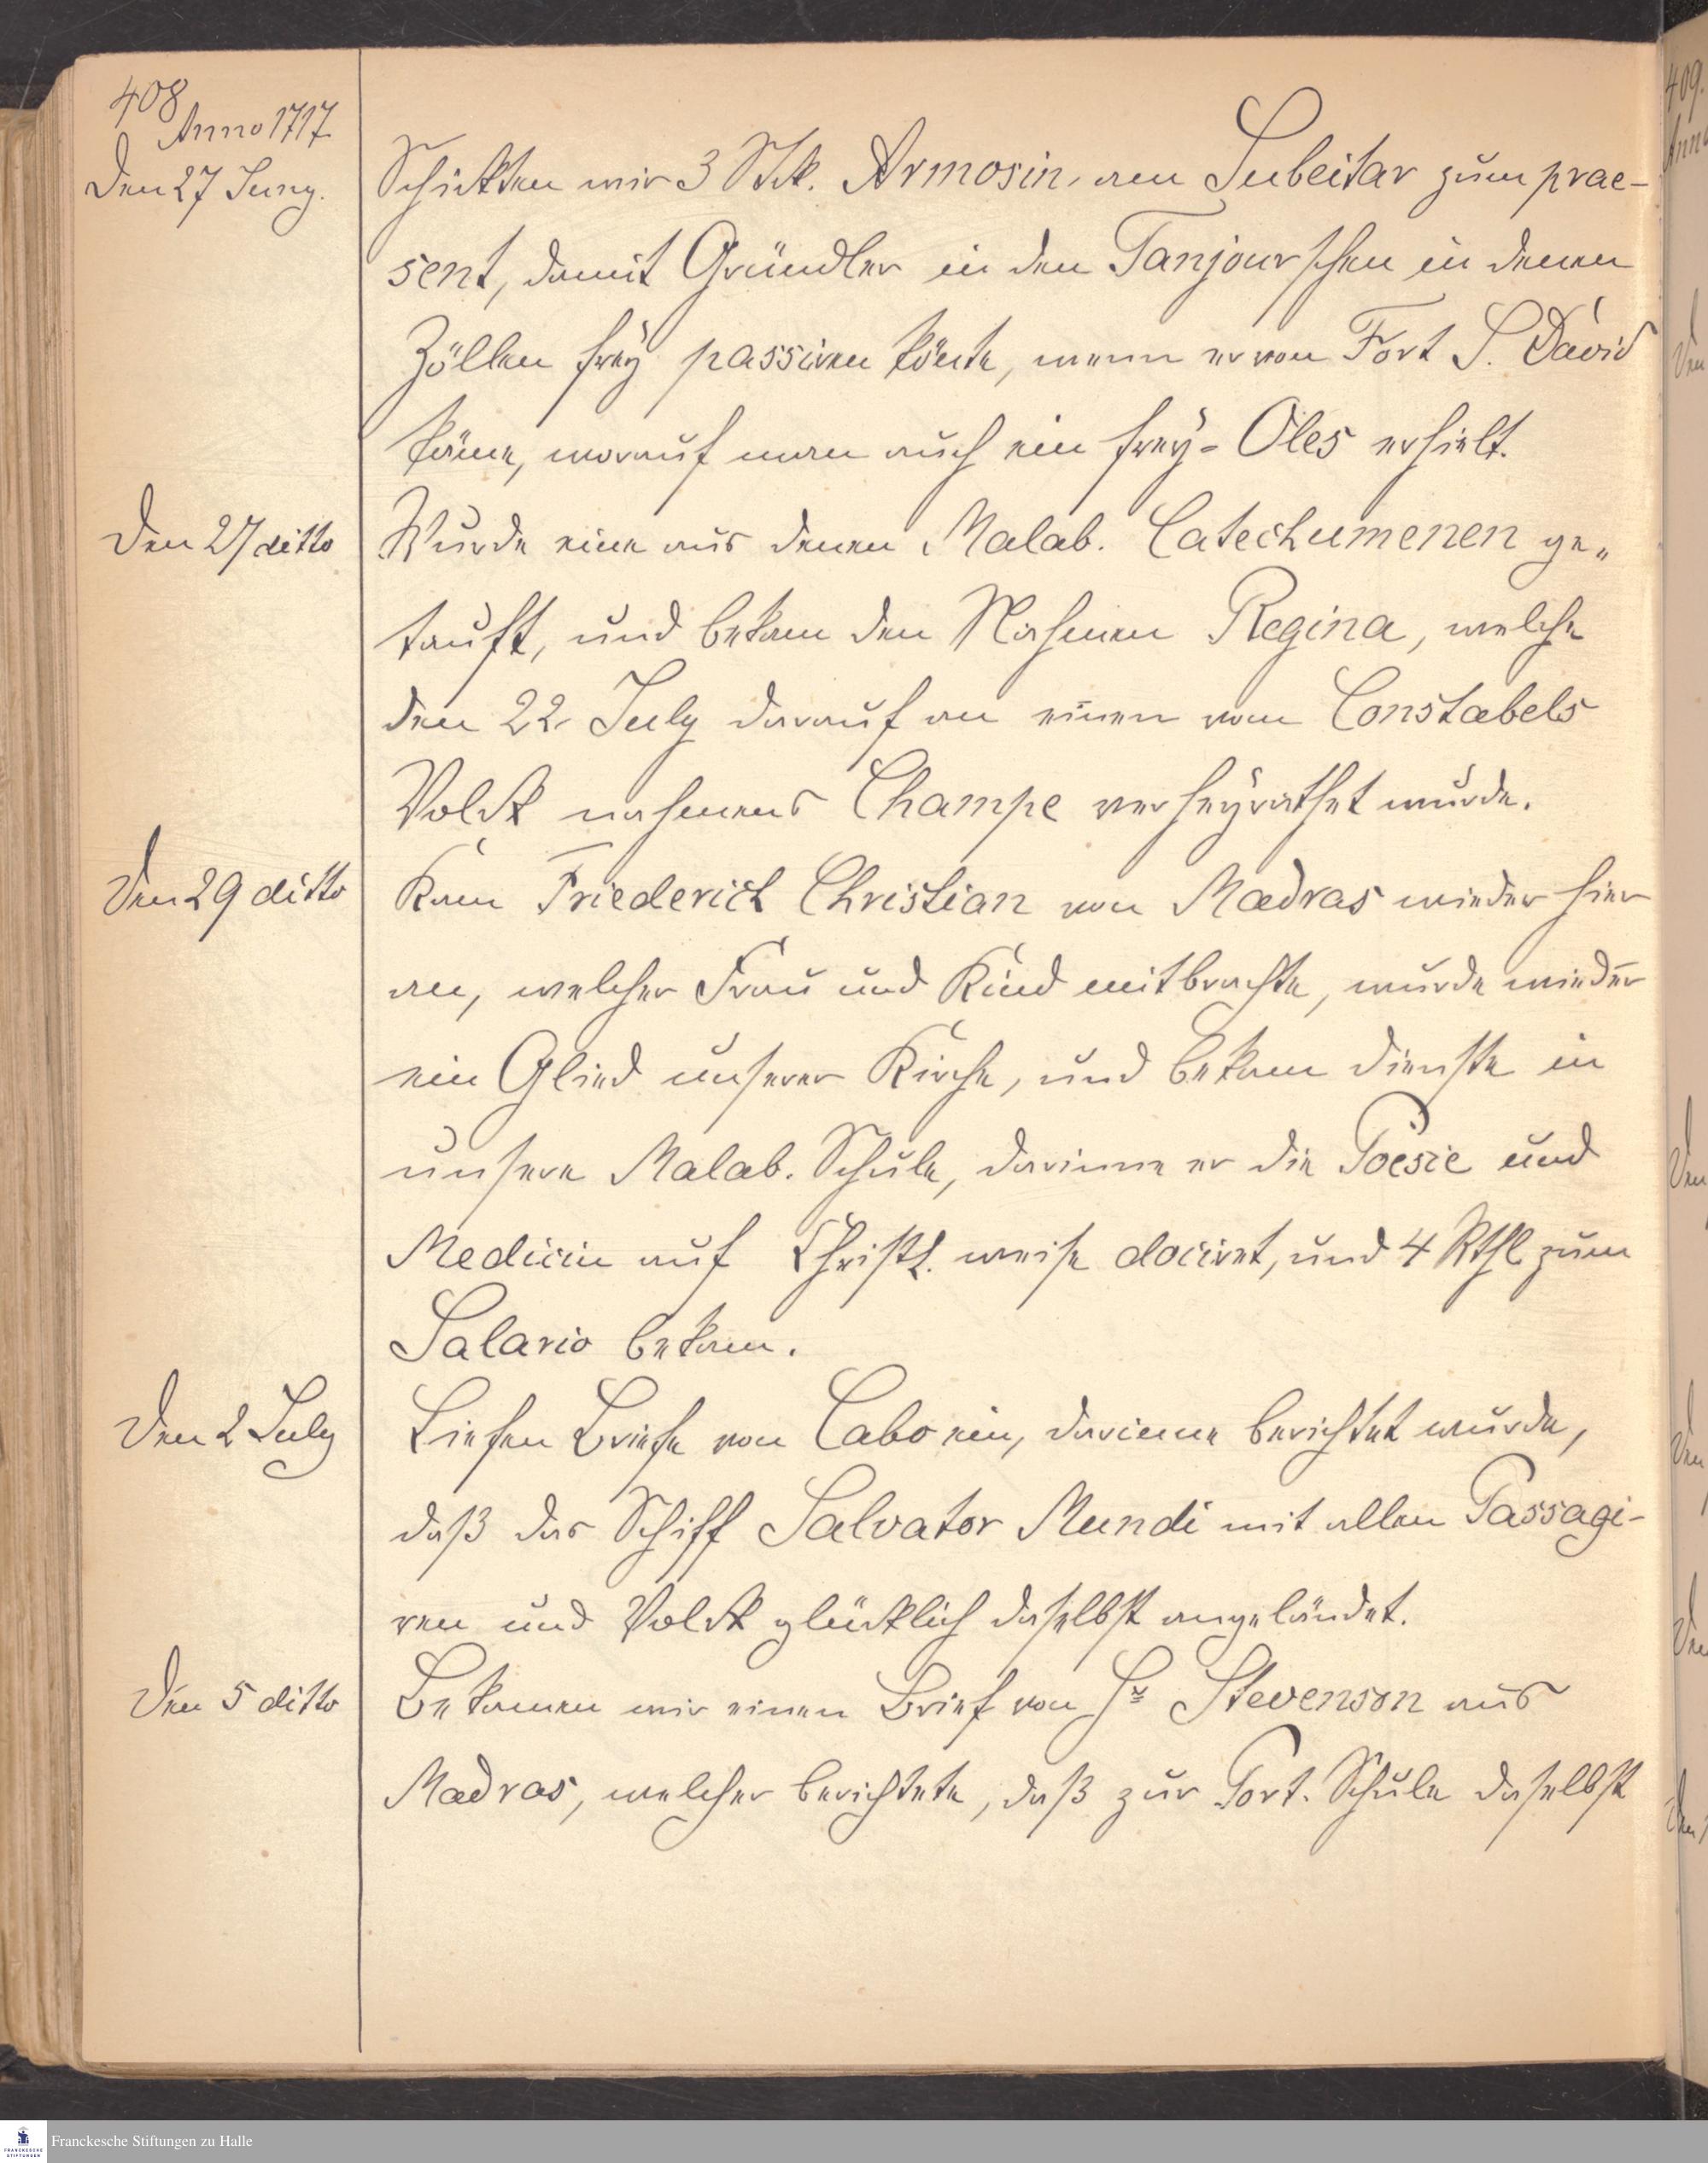 408
Anno 1717
Den 27 Juny.
Schickten wir 3 Stk. Armosin, an Subeitar zum prae-
sent, damit Gründler in den Tanjourschen in denen
Zöllen frey passiren könte, wenn er von Fort S. David
käme, worauf man auch ein frey-Oles erhielt.
Den 27 ditto
Wurde eine aus denen Malab. Catechumenen ge„
tauft, und bekam den Nahmen Regina, welche
den 22. July darauf an einen vom Constabels
Volck nahmens Champe verheyrathet wurde.
Den 29 ditto
Kam Friederich Christian von Madras wieder hier
an, welcher Frau und Kind mitbrachte, wurde wieder
ein Glied unserer Kirche, und bekam Dienste in
unsere Malab. Schule, darinne er die Poësie und
Medicin auf Christl. weise dociret, und 4 Rthl zum
Salario bekam.
Den 2 July
Liefen Briefe von Cabo ein, darinne berichtet wurde,
daß das Schiff Salvator Mundi mit allen Passagi-
ren und Volck glücklich daselbst angeländet.
Den 5 ditto
Bekamen wir einen Brief von Hr Stevenson aus
Madras, welcher berichtete, daß zur Port. Schule daselbst
409.
Franckesche Stiftungen zu Halle